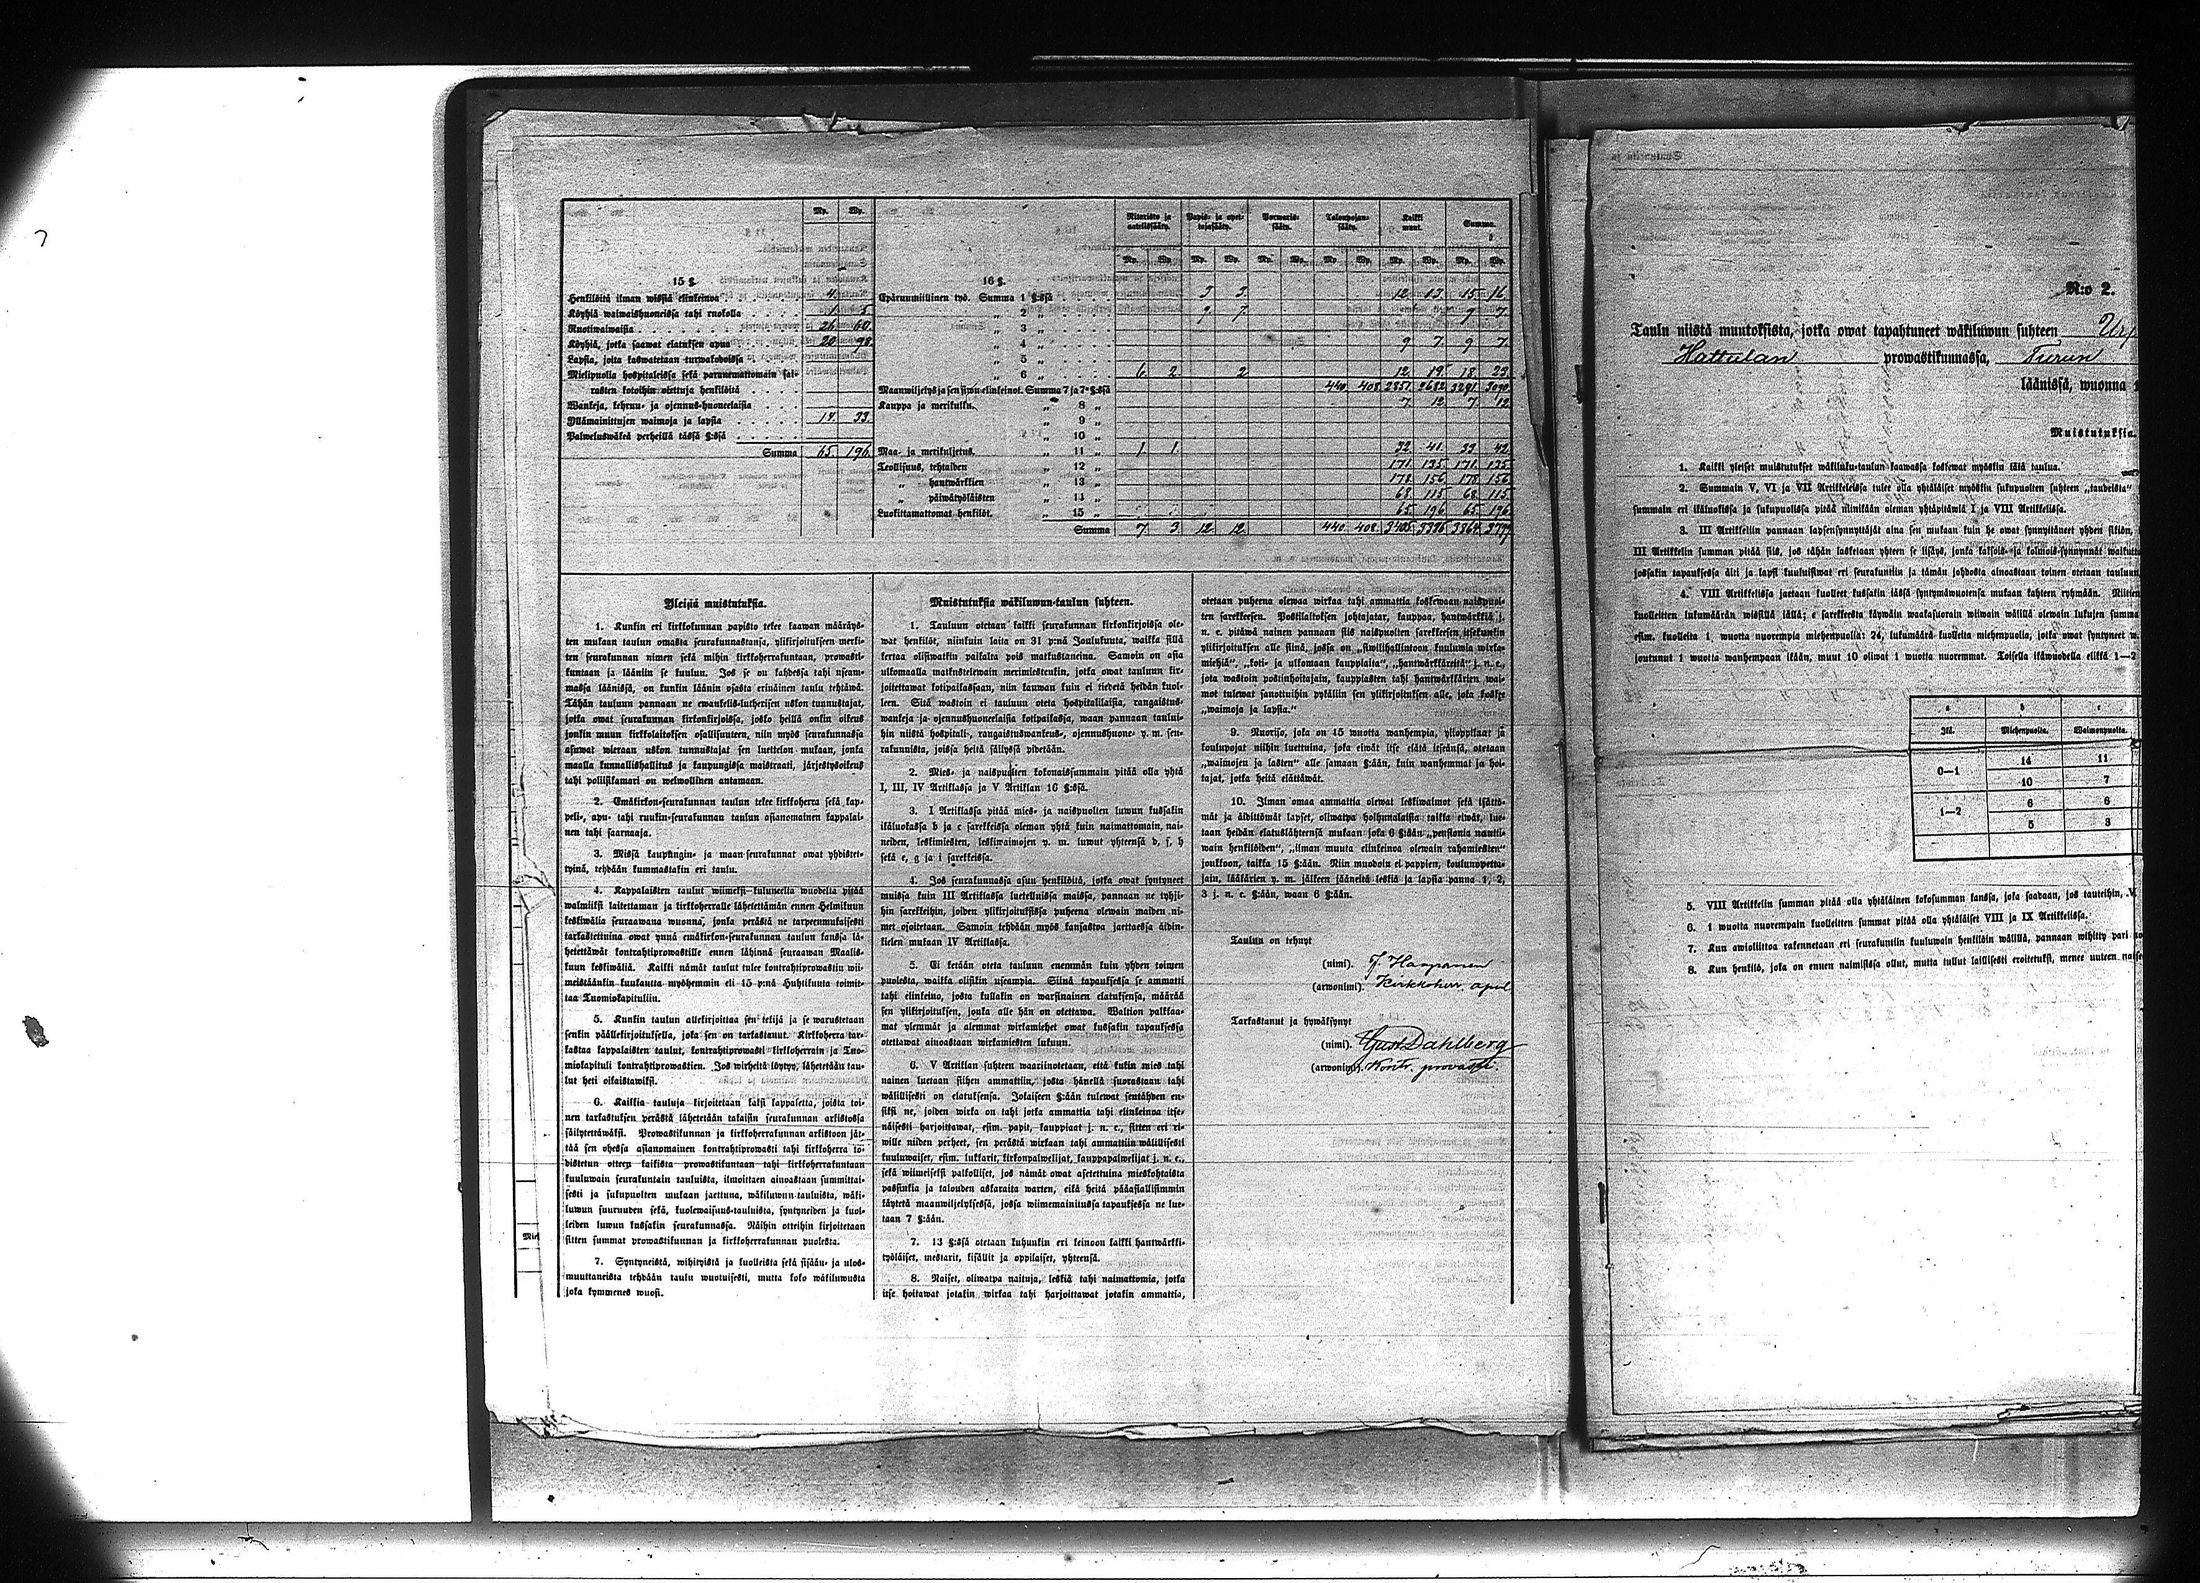 Mp. Wp.
15 §.
Henkilöitä ilman wissiä elinkeinoa 4
Köyhiä waiwaishuoneissa tahi ruokolla 1 5
Ruotiwaiwaisia 26 60
Köyhiä, jotka saawat elatuksen apua 20 98
Lapsia, joita kaswatetaan turwakodoissa
Mielipuolia hospitaleissa sekä parannuttomain sai-
rasten kotoihin otettuja henkilöitä
Wankeja, kehruu- ja ojennus-huonelaisia
Yllämainittujen waimoja ja lapsia 14 33
Palweluswäkeä perheillä tässä §:ssä
Summa 65 196
Ritaristo ja aatelissääty. Papis- ja opet-tajasääty. Porwaris-sääty. Talonpojan-sääty. Kaikki muut. Summa.
Mp. Wp. Mp. Wp. Mp. Wp. Mp. Wp. Mp. Wp. Mp. Wp.
16 §.
Epäruumiillinen työ. Summa 1 §:ssä 3 3 12 13 15 16
" 2 " 9 7 9 7
" 3 "
" 4 " 9 7 9 7
" 5 "
" 6 " 6 2 2 12 19 18 23
Maanwiljelys ja sen siwu-elinkeinot. Summa 7 ja 7a §:ssä 440 408 2851 2682 3291 3090
Kauppa ja merikulku. " 8 " 7 12 7 12
" 9 "
" 10 "
Maa- ja merikuljetus. " 11 " 1 1 32 41 33 42
Teollisuus, tehtaiden " 12 " 171 135 171 135
" hantwärkkien " 13 " 178 156 178 156
" päiwätyöläisten " 14 " 68 115 68 115
Luokittamattomat henkilöt. " 15 " 65 196 65 196
Summa 7 3 12 12 440 408 3405 3376 3864 3799
Yleisiä muistutuksia.
1. Kunkin eri kirkkokunnan papisto tekee kaawan määräys-
ten mukaan taulun omasta seurakunnastansa, ylikirjoitukseen merki-
ten seurakunnan nimen sekä mihin kirkkoherrakuntaan, prowasti-
kuntaan ja lääniin se kuuluu. Jos se on kahdessa tahi useam-
massa läänissä, on kunkin läänin osasta erinäinen taulu tehtäwä.
Tähän tauluun pannaan ne ewankelis-lutherisen uskon tunnustajat,
jotka owat seurakunnan kirkonkirjoissa, josko heillä onkin oikeus
jonkin muun kirkkolaitoksen osallisuuteen, niin myös seurakunnassa
asuwat wieraan uskon tunnustajat sen luettelon mukaan, jonka
maalla kunnallishallitus ja kaupungissa maistraati, järjestysoikeus
tahi poliisikamari on welwollinen antamaan.
2. Emäkirkon-seurakunnan taulun tekee kirkkoherra sekä kap-
peli-, apu- tahi ruukin-seurakunnan taulun asianomainen kappalai-
nen tahi saarnaaja.
3. Missä kaupungin- ja maan seurakunnat owat yhdistet-
tyinä, tehdään kummastakin eri taulu.
4. Kappalaisten taulut wiimeksi kuluneelta wuodelta pitää
walmiiksi laitettaman ja kirkkoherralle lähetettämän ennen Helmikuun
keskiwäliä seuraawana wuonna, jonka perästä ne tarpeenmukaisesti
tarkastettuina owat ynnä emäkirkon-seurakunnan taulun kanssa lä-
hetettäwät kontrahtiprowastille ennen lähinnä seuraawan Maalis-
kuun keskiwäliä. Kaikki nämät taulut tulee kontrahtiprowastin wii-
meistäänkin kuukautta myöhemmin eli 15 p:nä Huhtikuuta toimit-
taa Tuomiokapituliin.
5. Kunkin taulun allekirjoittaa sen tekijä ja se warustetaan
senkin päällekirjoituksella, joka sen on tarkastanut. Kirkkoherra tar-
kastaa kappalaisten taulut, kontrahtiprowasti kirkkoherrain ja Tuo-
miokapituli kontrahtiprowastien. Jos wirheitä löytyy, lähetetään tau-
lut heti oikaistawiksi.
6. Kaikkia tauluja kirjoitetaan kaksi kappaletta, joista toi-
nen tarkastuksen perästä lähetetään takaisin seurakunnan arkistossa
säilytettäwäksi. Prowastikunnan ja kirkkoherrakunnan arkistoon jät-
tää sen ohessa asianomainen kontrahtiprowasti tahi kirkkoherra to-
distetun otteen kaikista prowastikuntaan tahi kirkkoherrakuntaan
kuuluwain seurakuntain tauluista, ilmoittaen ainoastaan summittai-
sesti ja sukupuolten mukaan jaettuna, wäkiluwun-tauluista, wäki-
luwun suuruuden sekä, kuolewaisuus-tauluista, syntyneiden ja kuol-
leiden luwun kussakin seurakunnassa. Näihin otteihin kirjoitetaan
sitten summat prowastikunnan ja kirkkoherrakunnan puolesta.
7. Syntyneistä, wihityistä ja kuolleista sekä sisään- ja ulos-
muuttaneista tehdään taulu wuotuisesti, mutta koko wäkiluwusta
joka kymmenes wuosi.
Muistutuksia wäkiluwun-taulun suhteen.
1. Tauluun otetaan kaikki seurakunnan kirkonkirjoissa ole-
wat henkilöt, niinkuin laita on 31 p:nä Joulukuuta, waikka sillä
kertaa olisiwatkin paikalta pois matkustaneina. Samoin on asia
ulkomaalla matkustelewain merimiestenkin, jotka owat tauluun kir-
joitettawat kotipaikassaan, niin kauwan kuin ei tiedetä heidän kuol-
leen. Sitä wastoin ei tauluun oteta hospitalilaisia, rangaistus-
wankeja ja ojennushuoneelaisia kotipaikassa, waan pannaan taului-
hin niistä hospitali-, rangaistuswankeus-, ojennushuone- y. m. seu-
rakunnista, joissa heitä säilyssä pidetään.
2. Mies- ja naispuolten kokonaissummain pitää olla yhtä
I, III, IV Artiklassa ja V Artiklan 16 §:ssä.
3. I Artiklassa pitää mies- ja naispuolten luwun kussakin
ikäluokassa b ja c sarekkeissa oleman yhtä kuin naimattomain, nai-
neiden, leskimiesten, leskiwaimojen y. m. luwut yhteensä d, f, h
sekä e, g ja i sarekkeissa.
4. Jos seurakunnassa asuu henkilöitä, jotka owat syntyneet
muissa kuin III Artiklassa luetelluissa maissa, pannaan ne tyhji-
hin sarekkeihin, joiden ylikirjoituksissa puheena olewain maiden ni-
met osoitetaan. Samoin tehdään myös kansastoa jaettaessa äidin-
kielen mukaan IV Artiklassa.
5. Ei ketään oteta tauluun enemmän kuin yhden toimen
puolesta, waikka olisikin useampia. Siinä tapauksessa se ammatti
tahi elinkeino, josta kullakin on warsinainen elatuksensa, määrää
sen ylikirjoituksen, jonka alle hän on otettawa. Waltion palkkaa-
mat ylemmät ja alemmat wirkamiehet owat kussakin tapauksessa
otettawat ainoastaan wirkamiesten lukuun.
6. V Artiklan suhteen waariinotetaan, että kukin mies tahi
nainen luetaan siihen ammattiin, josta hänellä suorastaan tahi
wälillisesti on elatuksensa. Jokaiseen §:ään tulewat sentähden en-
siksi ne, joiden wirka on tahi jotka ammattia tahi elinkeinoa itse-
näisesti harjoittawat, esim. papit, kauppiaat j. n. e., sitten eri ri-
wille niiden perheet, sen perästä wirkaan tahi ammattiin wälillisesti
kuuluwaiset, esim. lukkarit, kirkonpalwelijat, kauppapalwelijat j. n. e.,
sekä wiimeiseksi palkolliset, jos nämät owat asetettuina mieskohtaista
passinkia ja talouden askaraita warten, eikä heitä pääasiallisimmin
käytetä maanwiljelyksessä, jossa wiimemainitussa tapauksessa ne lue-
taan 7 §:ään.
7. 13 §:ssä otetaan kuhunkin eri keinoon kaikki hantwärkki-
työläiset, mestarit, kisällit ja oppilaiset, yhteensä.
8. Naiset, oliwatpa naituja, leskiä tahi naimattomia, jotka
itse hoitawat jotakin wirkaa tahi harjoittawat jotakin ammattia,
otetaan puheena olewaa wirkaa tahi ammattia koskewaan naispuol-
ten sarekkeesen. Postilaitoksen johtajatar, kauppaa, hantwärkkiä j.
n. e. pitäwä nainen pannaan siis naispuolten sarekkeesen itsekunkin
ylikirjoituksen alle siinä, jossa on „siwilihallintoon kuuluwia wirka-
miehiä“, „koti- ja ulkomaan kauppiaita“, „hantwärkkäreitä“ j. n. e.,
jota wastoin postinhoitajain, kauppiasten tahi hantwärkkärien wai-
mot tulewat sanottuihin pykäliin sen ylikirjoituksen alle, jota koskee
„waimoja ja lapsia.“
9. Nuoriso, joka on 15 wuotta wanhempia, ylioppilaat ja
koulupojat niihin luettuina, joka eiwät itse elätä itseänsä, otetaan
„waimojen ja lasten“ alle samaan §:ään, kuin wanhemmat ja hoi-
tajat, jotka heitä elättäwät.
10. Ilman omaa ammattia olewat leskiwaimot sekä isättö-
mät ja äidittömät lapset, oliwatpa holhunalaisia taikka eiwät, lue-
taan heidän elatuslähteensä mukaan joka 6 §:ään „pensionia nautti-
wain henkilöiden“, „ilman muuta elinkeinoa olewain rahamiesten“
joukkoon, taikka 15 §:ään. Niin muodoin ei pappien, koulunopetta-
jain, lääkärien y. m. jälkeen jääneitä leskiä ja lapsia panna 1, 2,
3 j. n. e. §:ään, waan 6 §:ään.
Taulun on tehnyt
(nimi). J. Haapanen
(arwonimi). Kirkkoherr. apul
Tarkastanut ja hywäksynyt
(nimi). Gust Dahlberg
(arwonimi). Kontr. provasti.
N:o 2.
Taulu niistä muutoksista, jotka owat tapahtuneet wäkiluwun suhteen Urj
Hattulan prowastikunnassa, Turun
läänissä, wuonna 1
Muistutuksia.
1. Kaikki yleiset muistutukset wäkiluku-taulun kaawassa koskewat myöskin tätä taulua.
2. Summain V, VI ja VII Artikkeleissa tulee olla yhtäläiset myöskin sukupuolten suhteen „taudeista“
summain eri ikäluokissa ja sukupuolissa pitää niinikään oleman yhtäpitäwiä I ja VIII Artikkelissa.
3. III Artikkeliin pannaan lapsensynnyttäjät aina sen mukaan kuin he owat synnyttäneet yhden sikiön,
III Artikkelin summan pitää siis, jos tähän lasketaan yhteen se lisäys, jonka kaksois- ja kolmois-synnynnät waikutta
jossakin tapauksessa äiti ja lapsi kuuluisiwat eri seurakuntiin ja tämän johdosta ainoastaan toinen otetaan tauluun,
4. VIII Artikkelissa jaetaan kuolleet kussakin iässä syntymäwuotensa mukaan kahteen ryhmään. Niitten
kuolleitten lukumäärän wissillä iällä; c sarekkeesta käywäin waakasuorain wiiwain wälillä olewain lukujen summa
esim. kuolleita 1 wuotta nuorempia miehenpuolia: 24, lukumäärä kuolleita miehenpuolia, jotka owat syntyneet w.
joutunut 1 wuotta wanhempaan ikään, muut 10 oliwat 1 wuotta nuoremmat. Toisella ikäwuodella elikkä 1—2
a b c
Ikä. Miehenpuolia. Waimonpuolia.
0—1 14 11
10 7
1—2 6 6
5 3
5. VIII Artikkelin summan pitää olla yhtäläinen kokosumman kanssa, joka saadaan, jos tauteihin, V
6. 1 wuotta nuorempain kuolleitten summat pitää olla yhtäläiset VIII ja IX Artikkelissa.
7. Kun awioliittoa rakennetaan eri seurakuntiin kuuluwain henkilöin wälillä, pannaan wihitty pari
8. Kun henkilö, joka on ennen naimisissa ollut, mutta tullut laillisesti eroitetuksi, menee uuteen naise